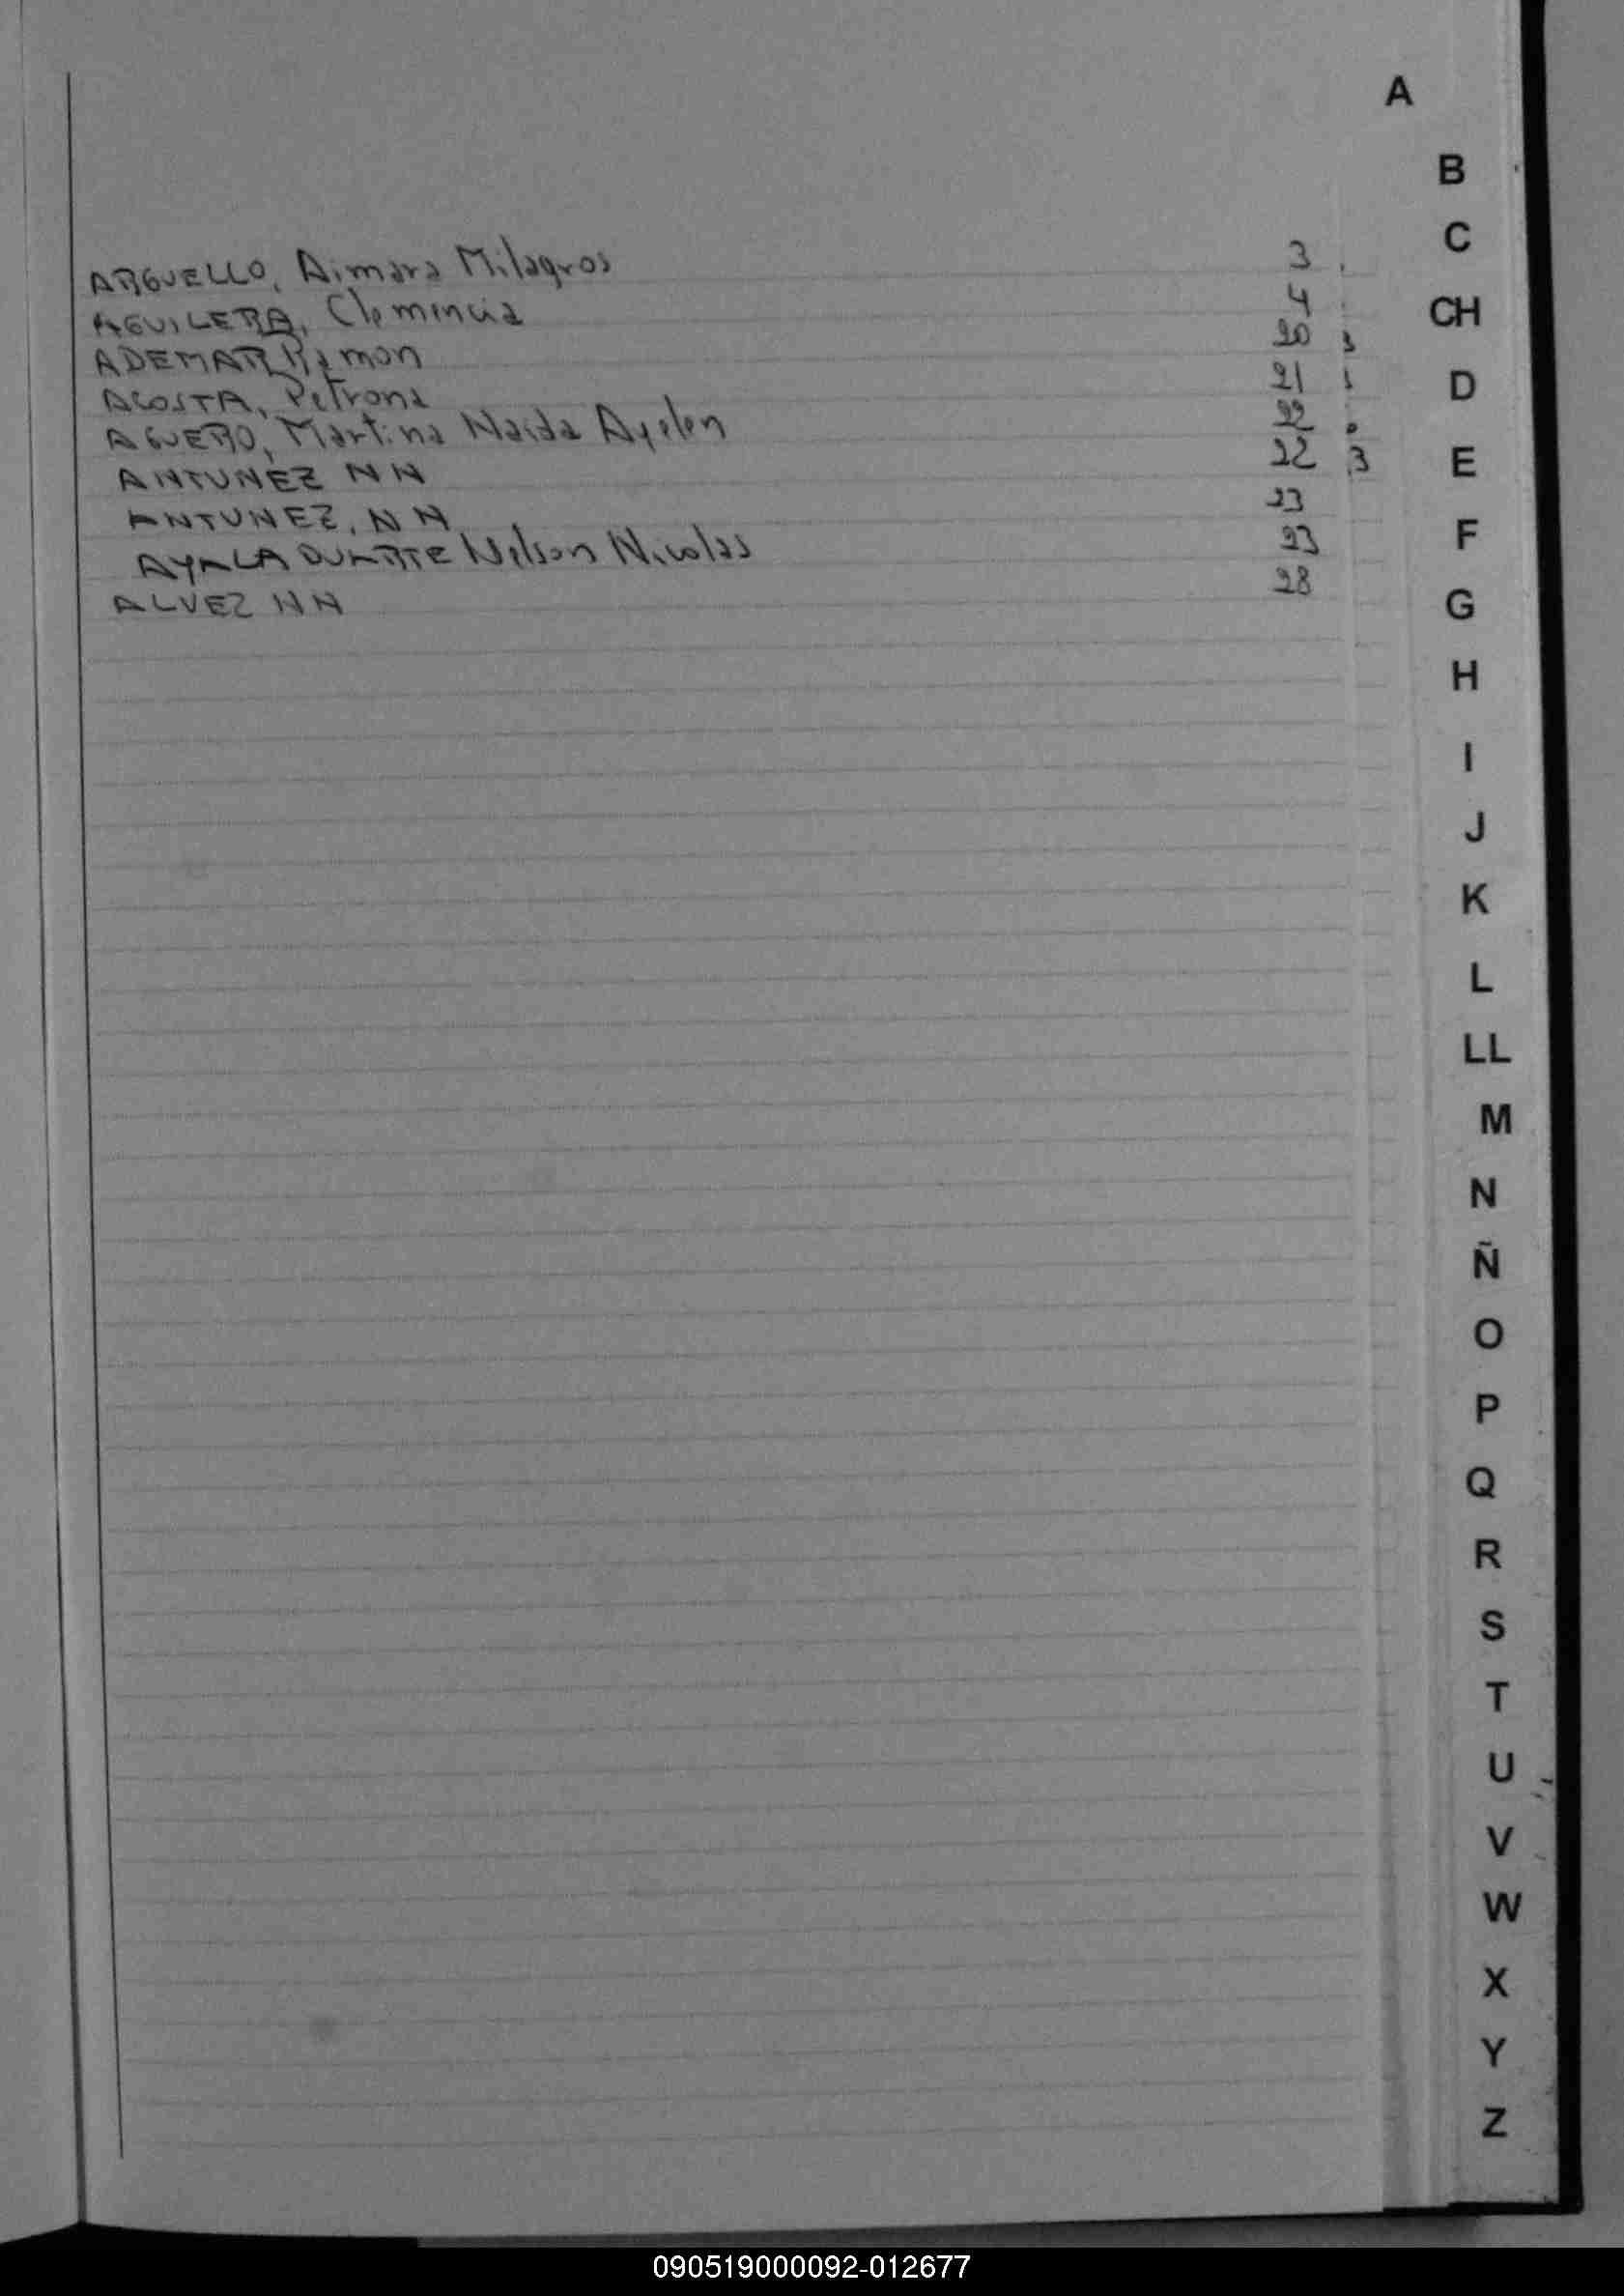 A
ARGUELLO, Aimara Milagros 3
AGUILERA, Clemencia 4
ADEMAR Ramon 20
ACOSTA, Petrona 21
AGUERO, Martina Naida Ayelen 22
ANTUNEZ NN 22
ANTUNEZ, NN 23
AYALA DUARTE Nelson Nicolas 23
ALVEZ NN 28
B
C
CH
D
E
F
G
H
I
J
K
L
LL
M
N
Ñ
O
P
Q
R
S
T
U
V
W
X
Y
Z
090519000092-012677